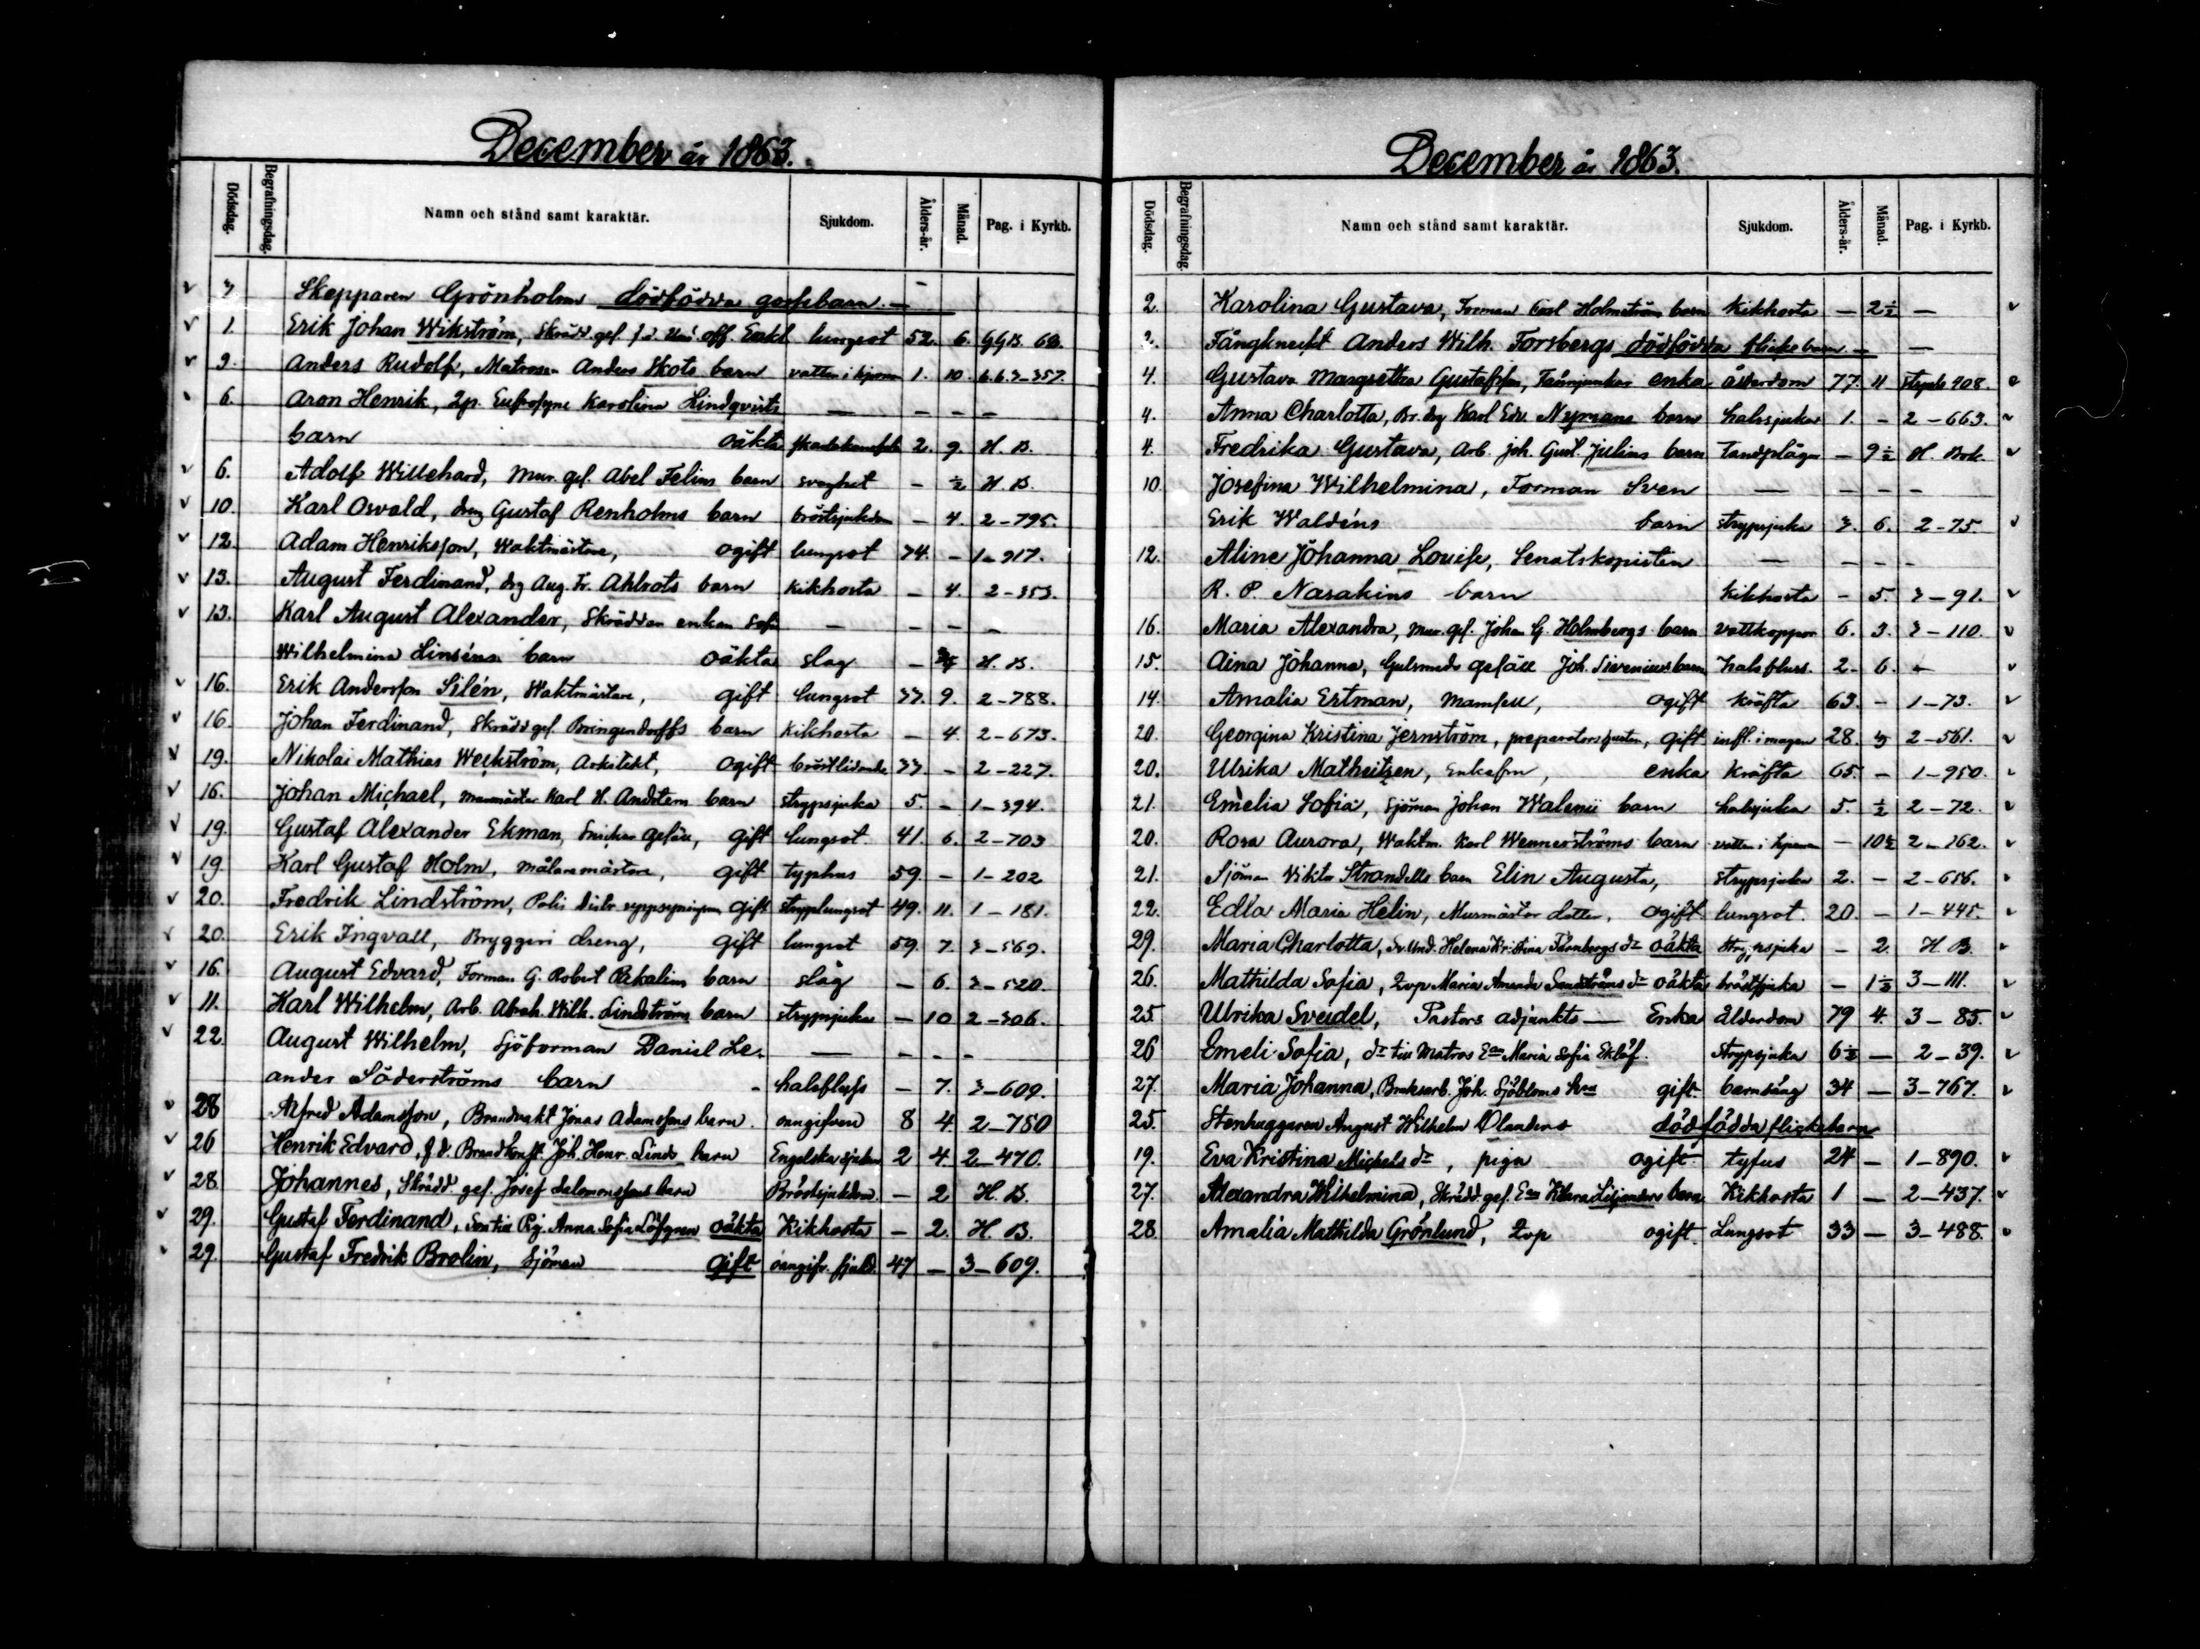 December år 1863.
Dödsdag. Begrafningsdag. Namn och stånd samt karaktär. Sjukdom. Ålders-år. Månad. Pag. i Kyrkb.
3 Skepparen Grönholms dödfödda gossebarn. —
1. Erik Johan Wikström, Skrädd. gef. lungsot 52. 6. GGB. 68.
3. Anders Rudolf, Matrosen Anders Skots barn vatten i hjernan 1. 10. 357.
6. Aron Henrik, Eufrosyne Karolina Lindqvists — — — —
barn oäkta 2. 9. H. B.
6. Adolf Willehard, Mur. gef. Abel Felins barn svaghet — ½ H. B.
10. Karl Osvald, drg Gustaf Renholms barn bröstsjukdom — 4. 2–795.
12. Adam Henriksson, Waktmästare, ogift lungsot 74. — 1–917.
13. August Ferdinand, drg Aug. Fr. Ahlrots barn kikhosta — 4. 2–353.
13. Karl August Alexander, Skräddare enkan Sofia — — — —
Wilhelmina Linséns barn oäkta slag — H. B.
16. Erik Andersson Silén, Waktmästare, gift lungsot 33. 9. 2–788.
16. Johan Ferdinand, Skrädd gef. Bringendorffs barn kikhosta — 4. 2–673.
19. Nikolai Mathias Weckström, Arkitekt, ogift bröstlidande 33. — 2–227.
16. Johan Michael, murmästar Karl H. Andstens barn strypsjuka 5. — 1–394.
19. Gustaf Alexander Ekman, Snickar gefäll, gift lungsot 41. 6. 2–703
19. Karl Gustaf Holm, målaremästare, gift typhus 59. — 1–202
20. Fredrik Lindström, Polis distr. uppsyningsm. gift lungsot 49. 11. 1–181.
20. Erik Ingvall, Bryggeri dreng, gift lungsot 59. 7. 3–569.
16. August Edvard, Forman G. Robert barn slag — 6. 3–520.
11. Karl Wilhelm, Arb. Abrah. Wilh. Lindströms barn strypsjuka — 10 2–306.
22. August Wilhelm, Sjöforman Daniel Le- — — — —
ander Söderströms barn halsfluss — 7. 3–609.
28 Alfred Adamsson, Brandvakt Jonas Adamssons barn. oangifven 8 4. 2–750
26 Henrik Edvard, f. d. Joh. Henr. Linds barn Engelska sjukan 2 4. 2–470.
28 Johannes, Skrädd. gef. Josef Salomonssons barn Bröstsjukdom. — 2 H. B.
29. Gustaf Ferdinand, Pig. Anna Sofia Löfgren oäkta Kikhosta — 2. H. B.
29. Gustaf Fredrik Brolin, Sjöman gift 47 — 3–609.
December år 1863.
Dödsdag. Begrafningsdag. Namn och stånd samt karaktär. Sjukdom. Ålders-år. Månad. Pag. i Kyrkb.
2. Karolina Gustava, Forman Carl Holmströms barn kikhosta — 2½ —
Fångknecht Anders Wilh. Forsbergs dödfödda flickebarn — —
4. Gustava Margretha Gustafsson, enka ålderdom 77. 11 908.
4. Anna Charlotta, drg Karl Edv. Nymans barn halssjuka 1. — 2–663.
4. Fredrika Gustava, Arb. Joh. Gust. Julins barn Tandplågor — 9½ H. Bok.
10. Josefina Wilhelmina, Forman Sven — — — —
Erik Waldéns barn strypsjuka 3. 6. 2–75.
12. Aline Johanna Louise, Senatskopisten — — — —
R. P. Narakins barn kikhosta — 5. 3–91.
16. Maria Alexandra, mur. gef. Johan G. Holmbergs barn vattkoppor 6. 3. 3–110.
15. Aina Johanna, Gulsmeds gefäll Joh. Sireniuss barn halsfluss. 2. 6. —
14. Amalia Ertman, Mamsell, ogift kräfta 63. — 1–73.
20. Georgina Kristina Jernström, gift infl. i magen 28. 2–561.
20. Ulrika Matheitzen, Enkefru, enka kräfta 65. — 1–950.
21. Emelia Sofia, Sjöman Johan Walenii barn halssjuka 5. ½ 2–72.
20. Rosa Aurora, Waktm. Karl Wennerströms barn vatten i hjernan — 10½ 2–262.
21. Sjöman Viktor Strandells barn Elin Augusta, strypsjuka 2. — 2–656.
22. Edla Maria Helin, Murmästar dotter, ogift lungsot. 20. — 1–445.
29. Maria Charlotta, Helena Kristina Färnbergs dr oäkta strypsjuka — 2. H. B.
26. Mathilda Sofia, Qvp Maria Amanda Sandströms dr oäkta bröstsjuka — 1½ 3–111.
25 Ulrika Sveidel, Pastors adjunkts — Enka ålderdom 79 4. 3–85.
26 Emeli Sofia, dr till Matros Ean Maria Sofia Eklöf. Strypsjuka 6½ — 2–39.
27. Maria Johanna, Bruksarb. Joh. Sjöbloms hru gift. barnsäng 34 — 3–767.
25. Stenhuggaren August Wilhelm Olanders dödfödda flickebarn
19. Eva Kristina Michels dr, piga ogift tyfus 24 — 1–890.
27. Alexandra Wilhelmina, Skrädd. gef. Ean Klara Liljanders barn Kikhosta 1 — 2–437.
28. Amalia Mathilda Grönlund, Qvp ogift. Lungsot 33 — 3–488.